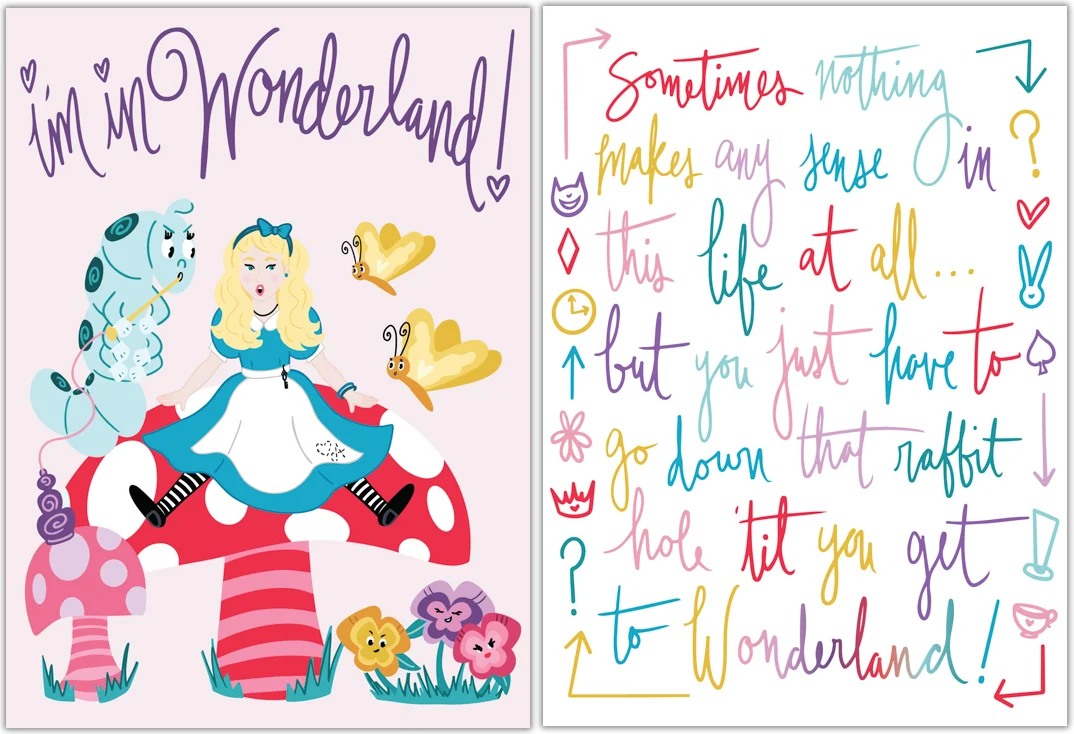 i'm in Wonderland!
Sometimes nothing
makes any sense in
this life at all...
but you just have to
go down that rabbit
hole 'til you get
to Wonderland!